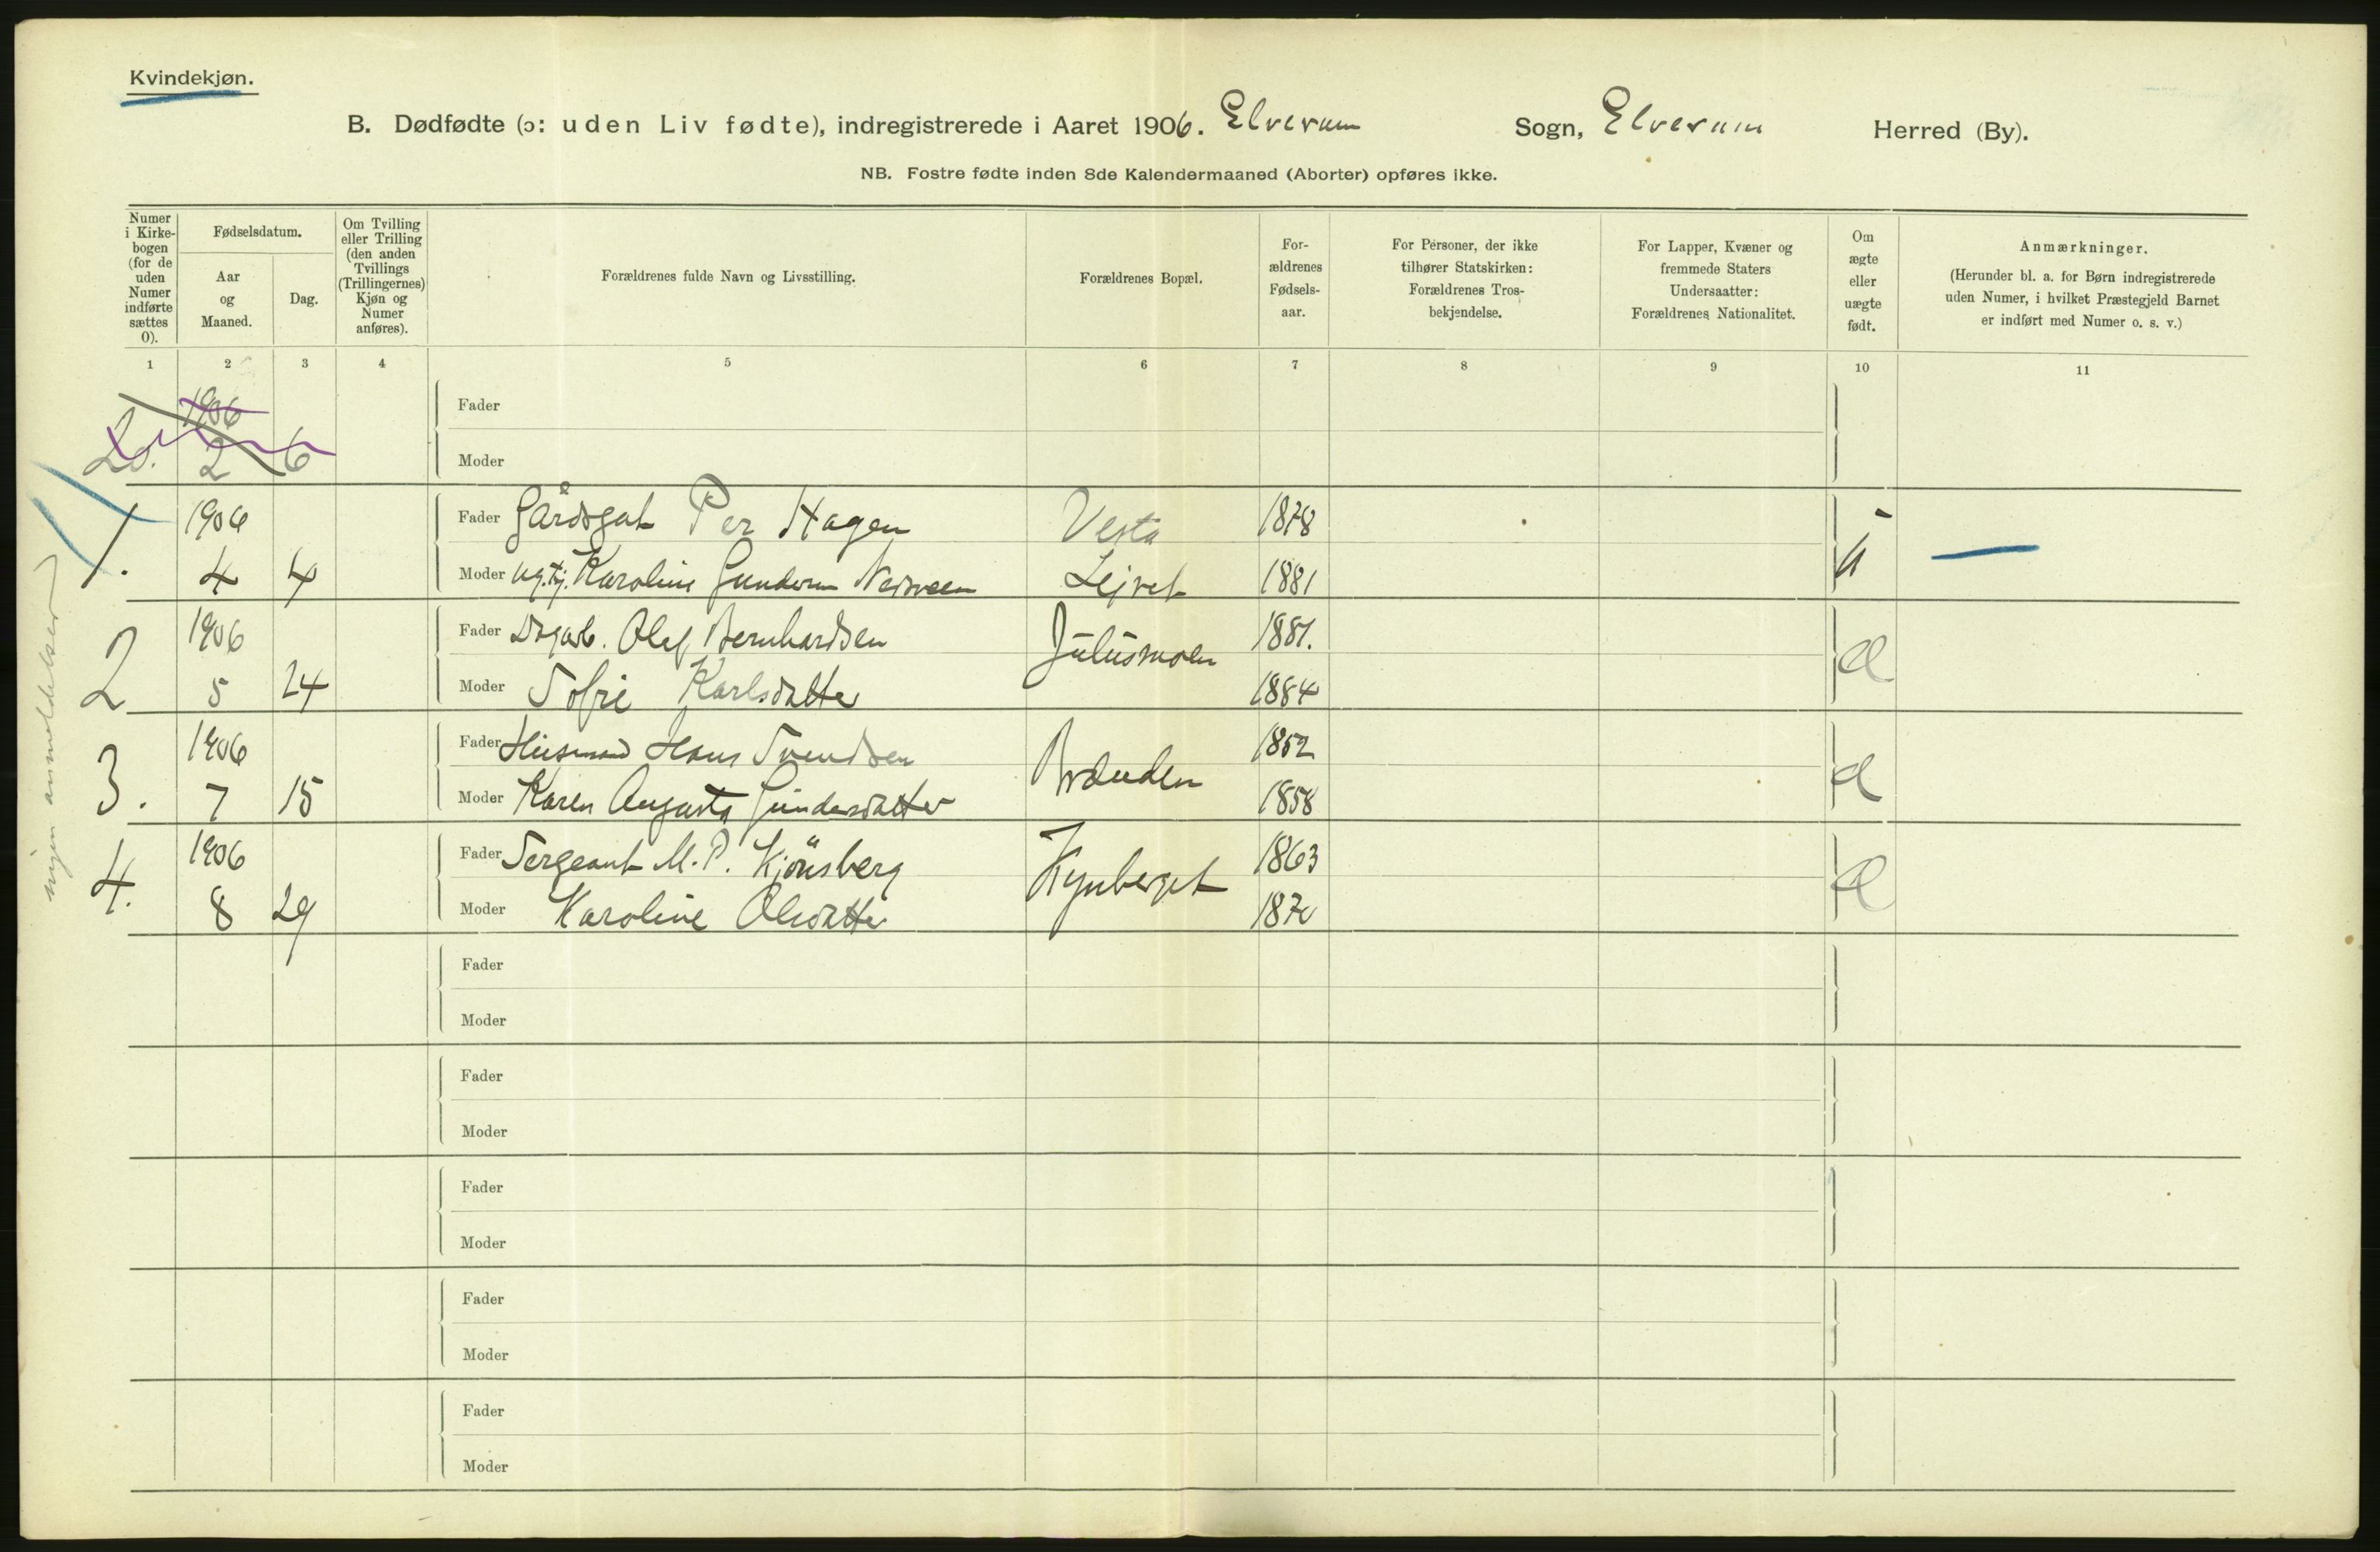 Kvindekjøn.
B. Dødfødte (ɔ: uden Liv fødte), indregistrerede i Aaret 1906. Elverum Sogn, Elverum Herred (By).
NB. Fostre fødte inden 8de Kalendermaaned (Aborter) opføres ikke.
Numer i Kirke-bogen (for de uden Numer indførte sættes 0).
Fødselsdatum.
Aar og Maaned.
Dag.
Om Tvilling eller Trilling (den anden Tvillings (Trillingernes) Kjøn og Numer anføres).
Forældrenes fulde Navn og Livsstilling.
Forældrenes Bopæl.
For-ældrenes Fødsels-aar.
For Personer, der ikke tilhører Statskirken: Forældrenes Tros-bekjendelse.
For Lapper, Kvæner og fremmede Staters Undersaatter: Forældrenes Nationalitet.
Om ægte eller uægte født.
Anmærkninger.
(Herunder bl. a. for Børn indregistrerede uden Numer, i hvilket Præstegjeld Barnet er indført med Numer o. s. v.)
1 2 3 4 5 6 7 8 9 10 11
1906
Fader
2 6
Moder
1. 1906
Fader Gårdsgut Per Hagen Vesta 1878
4 4
Moder Karoline Lejret 1881
2 1906
Fader Olef Bernhardsen Julusmoen 1881.
5 24
Moder Sofie Karlsdatter 1884
3. 1906
Fader Husmand Hans Svendsen Brænden 1852
7 15
Moder Karen Augusta Gundersdatter 1858
4. 1906
Fader Sergeant M. P. Kjönsberg Kynberget 1863
8 29
Moder Karoline Olesdatter
Fader
Moder
Fader
Moder
Fader
Moder
Fader
Moder
Fader
Moder